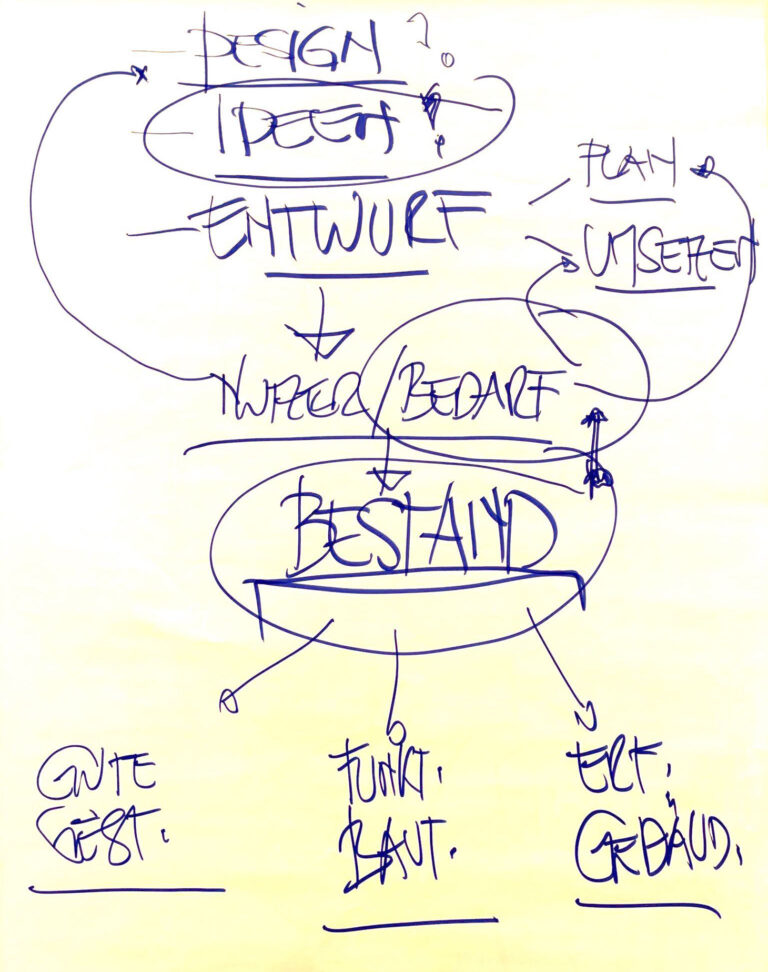 — DESIGN ?
— IDEEN !
— ENTWURF
PLAN
UMSETZEN
NUTZER / BEDARF
BESTAND
GUTE
GEST.
FUNKT.
BAUT.
ERF.
GEBÄUD.